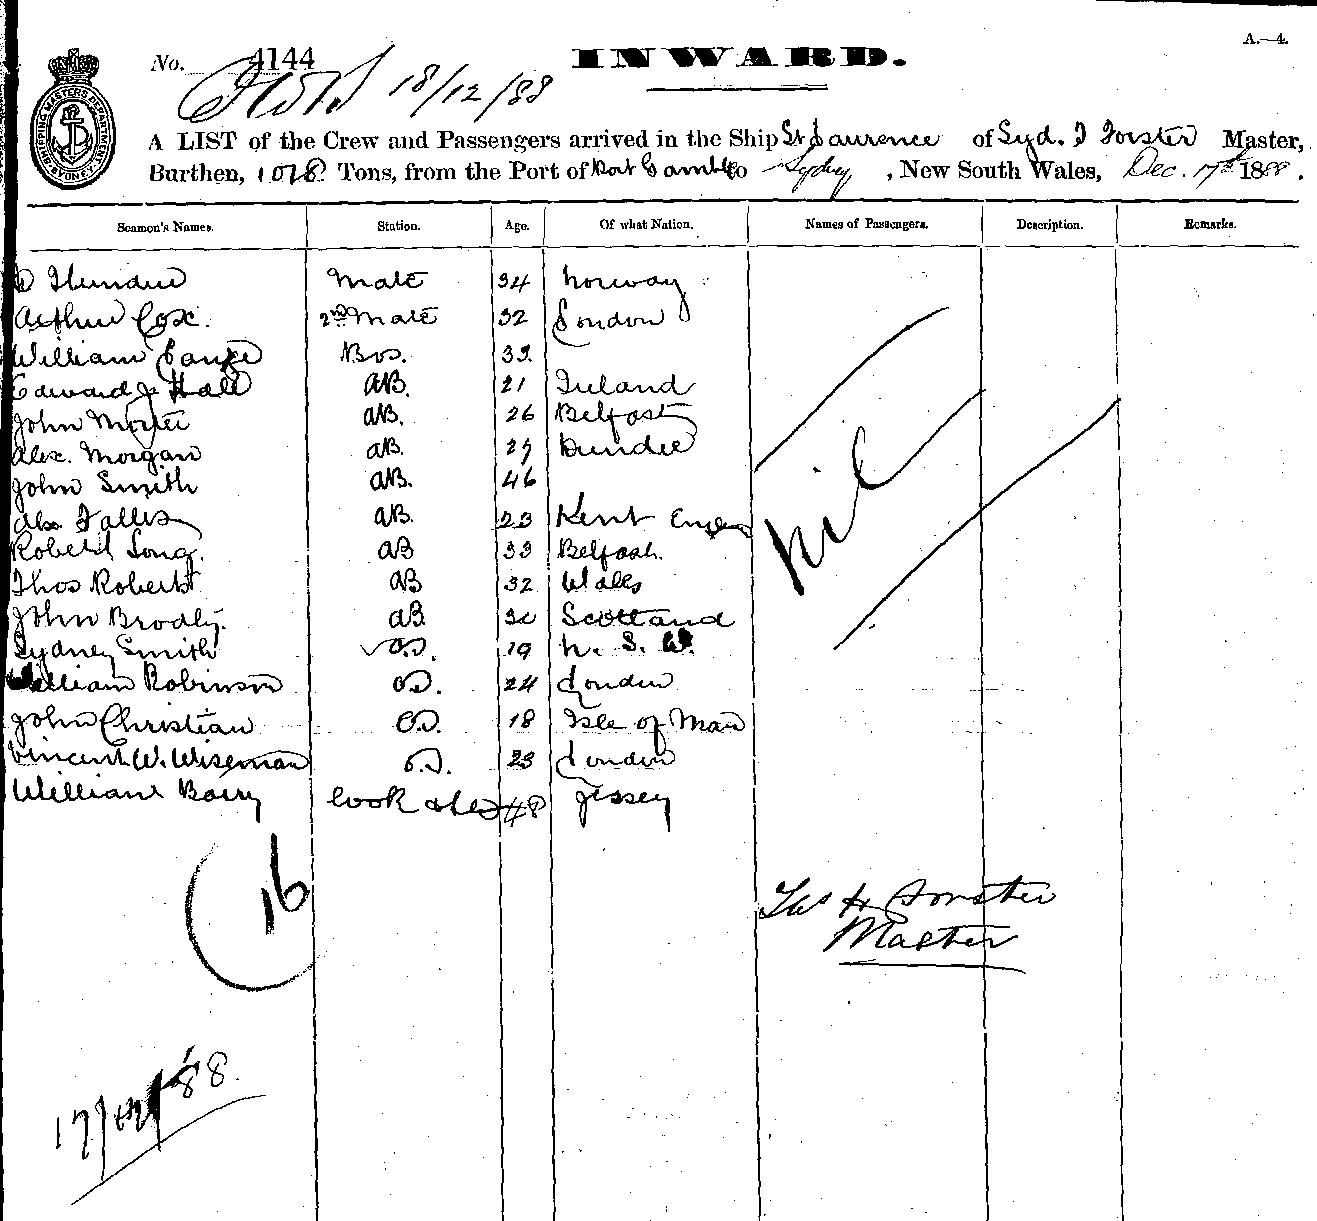 A.—4.
No. 4144 INWARD.
18/12/88
SHIPPING MASTERS DEPARTMENT SYDNEY
A LIST of the Crew and Passengers arrived in the Ship St Laurence of Syd. T Forster Master,
Burthen, 1078 Tons, from the Port of Port Gamble to Sydney, New South Wales, Dec. 17th 1888.
Seamen's Names. Station. Age. Of what Nation. Names of Passengers. Description. Remarks.
Mate 34 Norway
Arthur Cox. 2nd Mate 32 London
William Bos. 32
Edward J. Hall AB. 21 Ireland
John AB. 26 Belfast
Alex. Morgan AB. 27 Dundee
John Smith AB. 46
AB. 23 Kent
Robert Long. AB 33 Belfast.
Thos Roberts AB 32 Wales
John Brodly. AB. 30 Scotland
Sydney Smith O.S. 19 N. S. W.
William Robinson O.S. 24 London
John Christian O.S. 18 Isle of Man
Vincent W. Wiseman O.S. 23 London
William Barry Cook & Std 48 Jersey
Nil
16
Thos H Forster
Master
17/12/88.